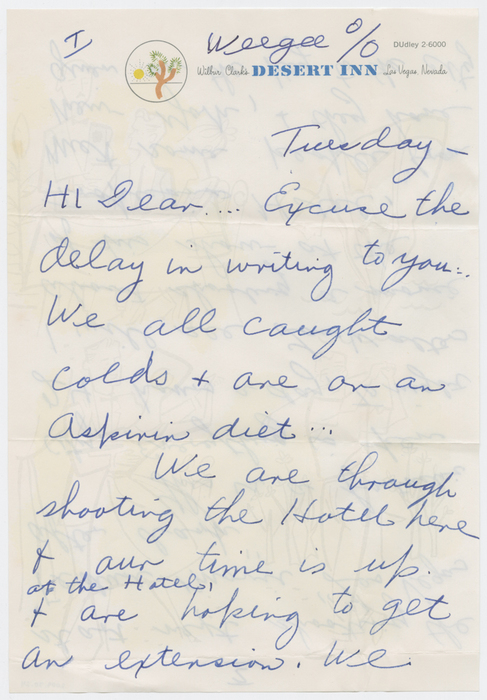 I
Weegee c/o
DUdley 2-6000
Wilbur Clark's DESERT INN Las Vegas, Nevada
Tuesday —
HI Dear.... Excuse the
delay in writing to you..
We all caught
colds + are on an
Aspirin diet...
We are through
shooting the Hotel here
+ our time is up.
at the Hotel,
+ are hoping to get
an extension. We